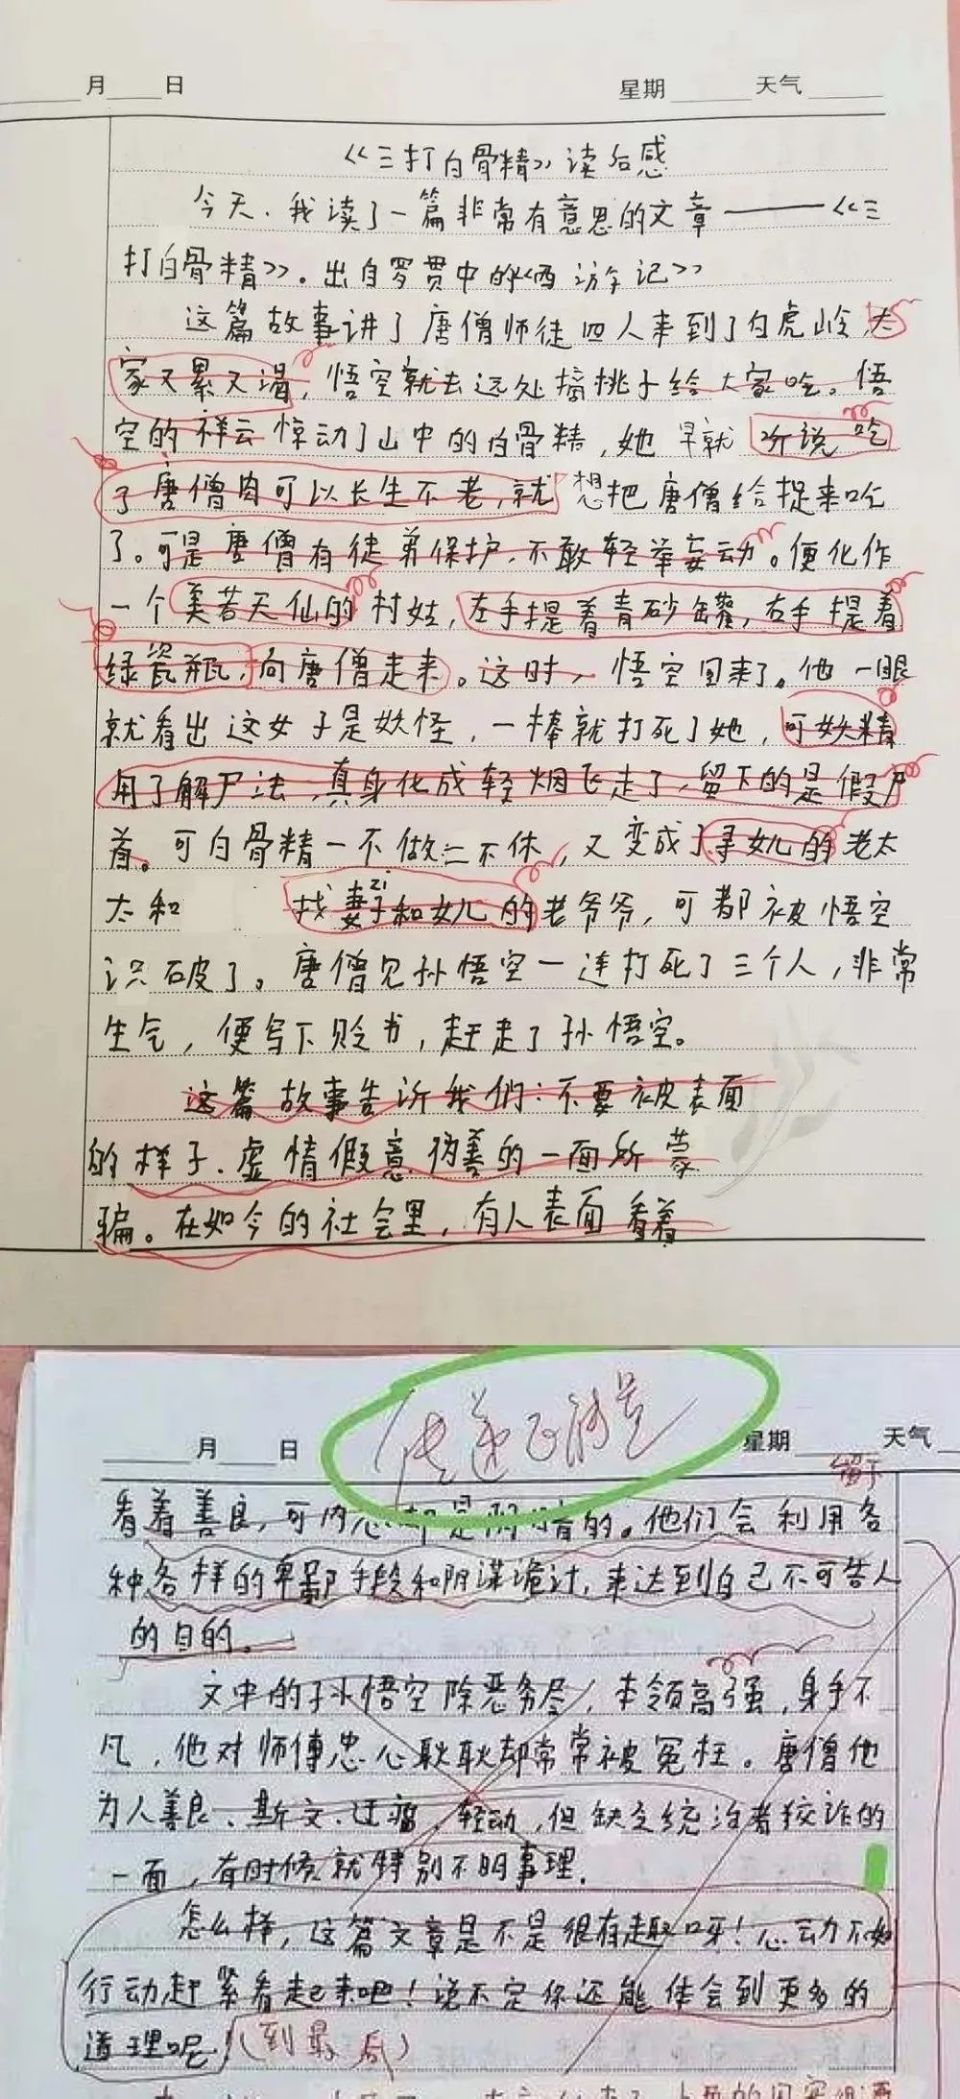 月 日 星期 天气
《三打白骨精》读后感
今天.我读了一篇非常有意思的文章——《三
打白骨精》。出自罗贯中的《西游记》
这篇故事讲了唐僧师徒四人来到了白虎岭,大
家又累又渴,悟空就去远处摘桃子给大家吃。悟
空的祥云惊动了山中的白骨精,她早就听说吃
了唐僧肉可以长生不老,就想把唐僧给捉来吃
了。可是唐僧有徒弟保护.不敢轻举妄动。便化作
一个美若天仙的村姑,左手提着青砂罐,右手提着
绿瓷瓶,向唐僧走来。这时,悟空回来了。他一眼
就看出这女子是妖怪,一棒就打死了她,可妖精
用了解尸法,真身化成轻烟飞走了,留下的是假尸
首。可白骨精一不做二不休,又变成了寻女儿的老太
太和 找妻子和女儿的老爷爷,可都被悟空
zi
识破了。唐僧见孙悟空一连打死了三个人,非常
生气,便写下贬书,赶走了孙悟空。
这篇故事告诉我们:不要被表面
的样子.虚情假意.伪善的一面所蒙
骗。在如今的社会里,有人表面看着
传递正能量
月 日 星期 天气
留下
看着善良,可内心却是阴暗的。他们会利用各
种各样的卑鄙手段和阴谋诡计,来达到自己不可告人
的目的。
文中的孙悟空除恶务尽,本领高强,身手不
凡,他对师傅忠心耿耿却常常被冤枉。唐僧他
为人善良、斯文、迂腐、轻动,但缺乏统治者狡诈的
一面,有时候就特别不明事理.
怎么样,这篇文章是不是很有趣呀!心动不如
行动赶紧看起来吧!说不定你还能体会到更多的
道理呢 (到最后)